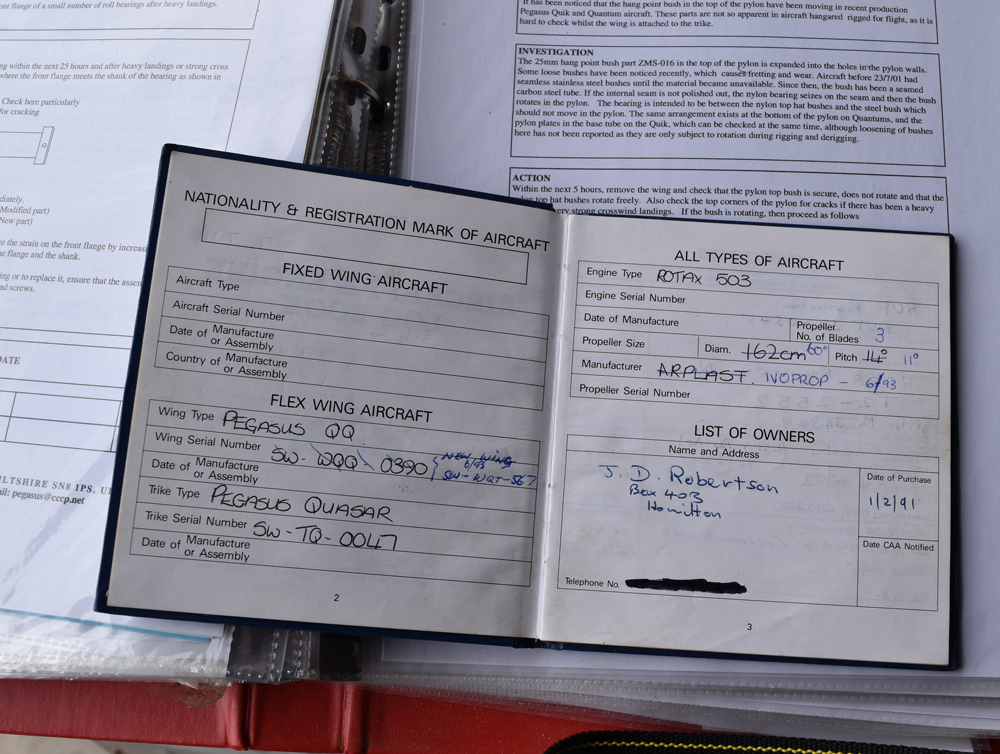 ont flange of a small number of roll bearings after heavy landings.
ng within the next 25 hours and after heavy landings or strong cross
where the front flange meets the shank of the bearing as shown in
Check here particularly
for cracking
diately.
Modified part)
New part)
e the strain on the front flange by increas
e flange and the shank.
ing or to replace it, ensure that the assem
ad screws.
DATE
ILTSHIRE SN8 1PS, U
ail: pegasus@cccp.net
It has been noticed that the hang point bush in the top of the pylon have been moving in recent production
Pegasus Quik and Quantum aircraft. These parts are not so apparent in aircraft hangared rigged for flight, as it is
hard to check whilst the wing is attached to the trike.
INVESTIGATION
The 25mm hang point bush part ZMS-016 in the top of the pylon is expanded into the holes in the pylon walls.
Some loose bushes have been noticed recently, which causes fretting and wear. Aircraft before 23/7/01 had
seamless stainless steel bushes until the material became unavailable. Since then, the bush has been a seamed
carbon steel tube. If the internal seam is not polished out, the nylon bearing seizes on the seam and then the bush
rotates in the pylon. The bearing is intended to be between the nylon top hat bushes and the steel bush which
should not move in the pylon. The same arrangement exists at the bottom of the pylon on Quantums, and the
pylon plates in the base tube on the Quik, which can be checked at the same time, although loosening of bushes
here has not been reported as they are only subject to rotation during rigging and derigging.
ACTION
Within the next 5 hours, remove the wing and check that the pylon top bush is secure, does not rotate and that the
top hat bushes rotate freely. Also check the top corners of the pylon for cracks if there has been a heavy
very strong crosswind landings. If the bush is rotating, then proceed as follows
NATIONALITY & REGISTRATION MARK OF AIRCRAFT
FIXED WING AIRCRAFT
Aircraft Type
Aircraft Serial Number
Date of Manufacture
or Assembly
Country of Manufacture
or Assembly
FLEX WING AIRCRAFT
Wing Type PEGASUS QQ
Wing Serial Number SW-WQQ-0390 NEW WING
6/93
SW-WQT-567
Date of Manufacture
or Assembly
Trike Type PEGASUS QUASAR
Trike Serial Number SW-TQ-0047
Date of Manufacture
or Assembly
2
ALL TYPES OF AIRCRAFT
Engine Type ROTAX 503
Engine Serial Number
Date of Manufacture
Propeller
No. of Blades 3
Propeller Size Diam. 162cm 60" Pitch 14° 11°
Manufacturer ARPLAST. IVOPROP - 6/93
Propeller Serial Number
LIST OF OWNERS
Name and Address
Date of Purchase
J. D. Robertson
Box 403
Hamilton
1/2/91
Date CAA Notified
Telephone No.
3